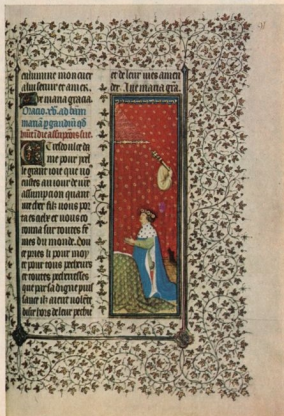 enlumine mon cuer
a lui seruir et amer.
maria gracia.
Oracio
maria p gaudiu qd
die sue.
resioule da
me pour ycel
le grant ioie que vo
eustes au iour de vre
assumption quant
vre chier filz vous por
ta es et vous co
rona sur toutes fe
mes du monde. dou
ce pries li pour moy
et pour tous pecheurs
et toutes pecherresses
que par sa digne puis
sance ilz aient
hors de leur pechie
et de leur vies amen
der. Aue maria gra.